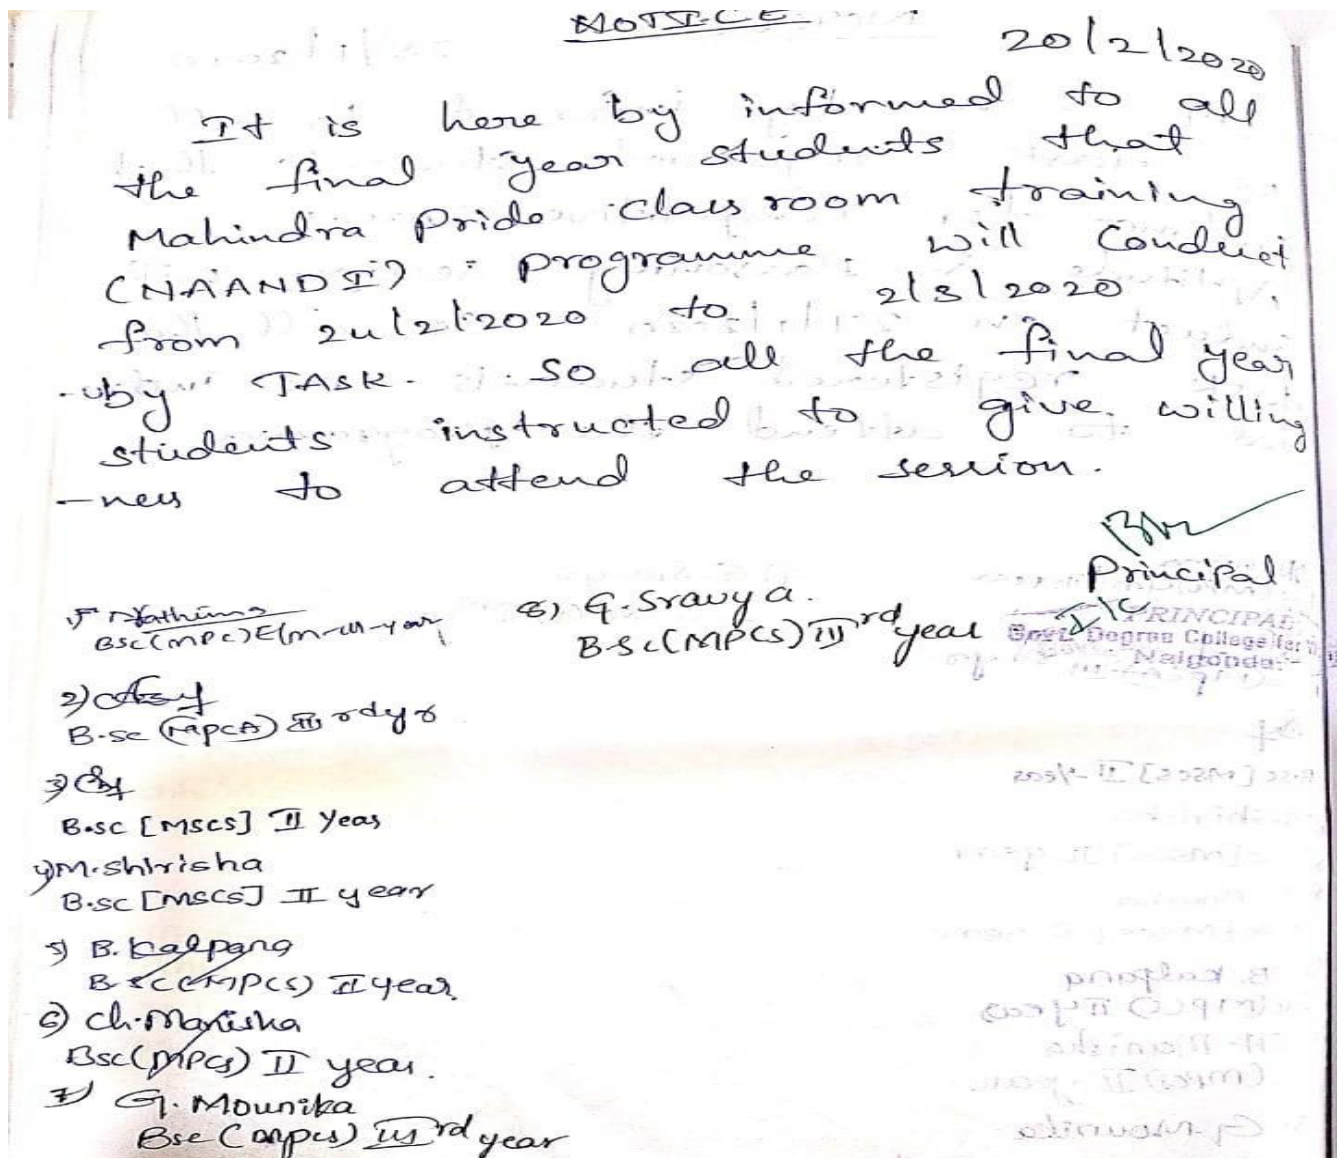 NOTICE
20/2/2020
It is here by informed to all
the final year students that
Mahindra Pride class room training
(NAANDI) programme. will conduct
from 24/2/2020 to 2/3/2020
by TASK. So all the final year
students instructed to give willing
-ness to attend the session.
Principal
I/C
PRINCIPAL
Govt. Degree College for
Nalgonda.
1)
BSc(MPC)E/m-III-year
2)
B.sc III rdyr
3)
B.sc [MSCS] II Year
4) M.shirisha
B.sc [MSCS] II year
5) B. Kalpana
B SC(MPCS) II year
6) Ch. Manisha
Bsc(MPCs) II year.
7) G. Mounika
Bsc (mpcs) III rd year
8) G. Sravya.
B.Sc(MPCS) III rd year